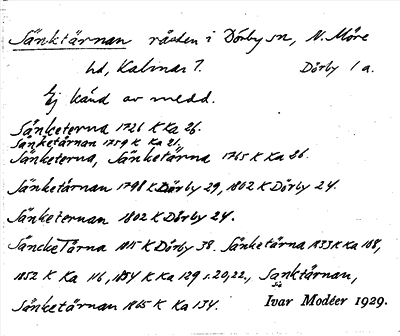 Sänktärnan råsten i Dörby sn, N. Möre
hd, Kalmar l. Dörby 1 a.
Ej känd av medd.
Sänketerna 1726 K Ka 26.
Sänketärnan 1759 K Ka 21,
Sänketerna, Sänketärna 1765 K Ka 26.
Sänketärnan 1798 K Dörby 29, 1802 K Dörby 24.
Sänketernan 1802 K Dörby 24.
SänckeTärna 1815 K Dörby 38. Sänketärna 1833 K Ka 108,
1852 K Ka 116, 1854 K Ka 129 s. 20, 22., Sänktärnan,
Sänketärnan 1865 K Ka 134. Ivar Modéer 1929.